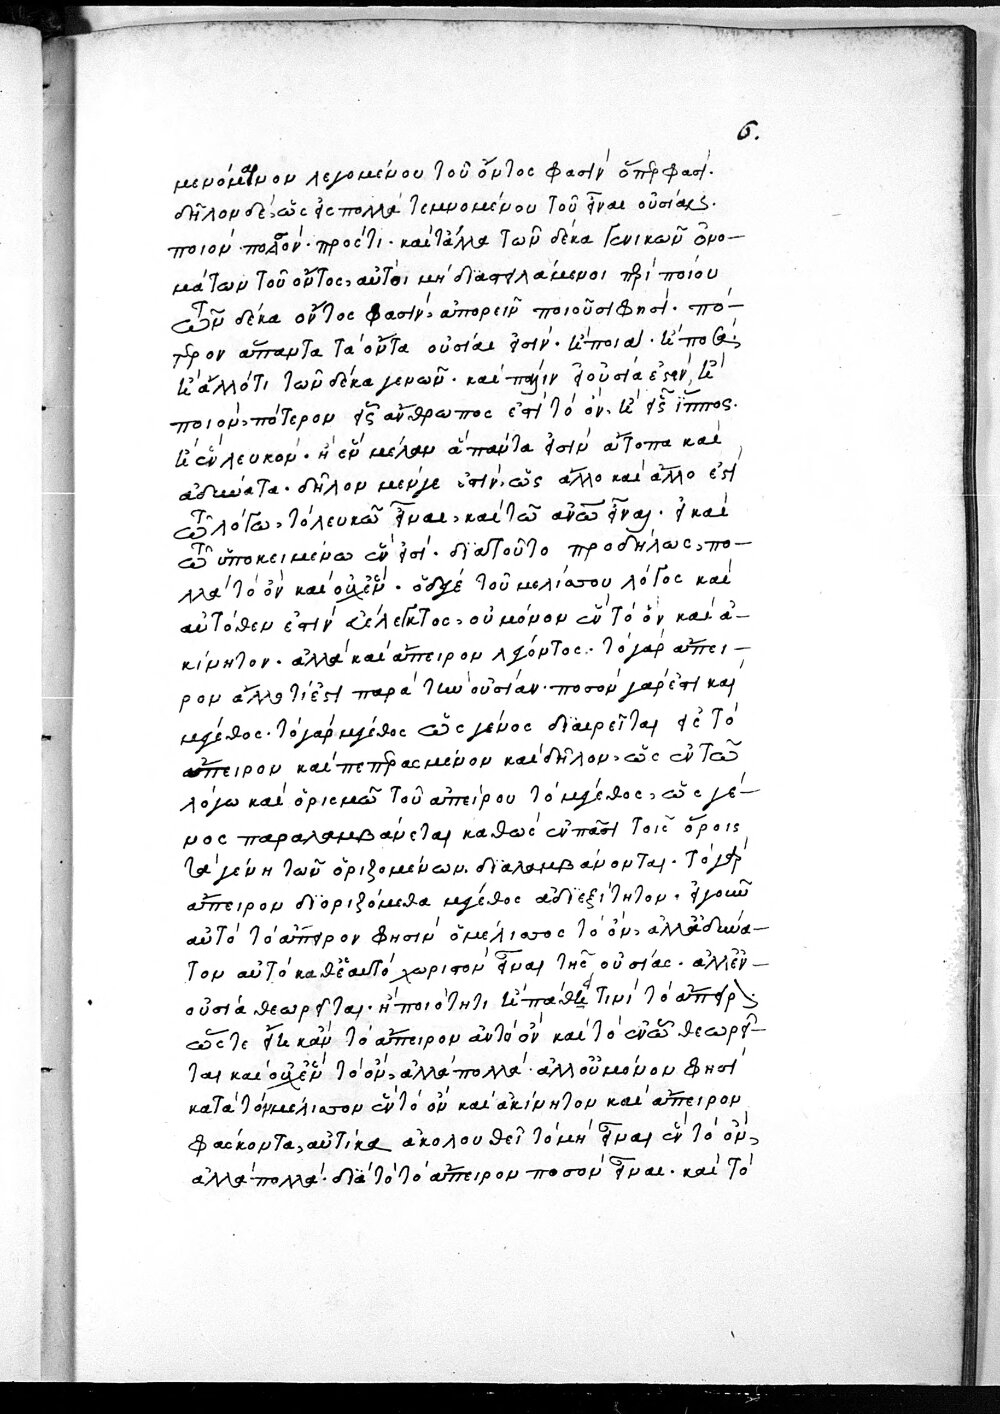 6.
μενόμενον λεγομένου τοῦ ὄντος φασὶν ὅπερ φασί.
δῆλον δέ, ὡς εἰς πολλὰ τεμνομένου τοῦ εἶναι οὐσίας.
ποιὸν· ποσὸν· πρὸς ἔτι· καὶ τἄλλα τῶν δέκα γενικῶν ὀνο-
μάτων τοῦ ὄντος, αὐτοὶ μὴ διαστειλάμενοι περὶ ποίου
τῶν δέκα ὄντος φασὶν, ἀπορεῖν ποιοῦσι φησί. πό-
τερον ἅπαντα τὰ ὄντα οὐσίαι εἰσίν· ἢ ποιαί· ἢ ποσά,
ἢ ἄλλό τι τῶν δέκα γενῶν· καὶ πάλιν εἰ οὐσία ἐστὶν, ἢ
ποιὸν, πότερον εἷς ἄνθρωπος ἐστὶ τὸ ὄν, ἢ εἷς ἵππος.
ἢ ἓν λευκόν· ἢ ἓν μέλαν ἅπαντα εἰσὶν ἄτοπα καὶ
ἀδύνατα· δῆλον μέν γε ἐστίν, ὡς ἄλλο καὶ ἄλλο ἐστὶ
τῶ λόγω, τὸ λευκῶ εἶναι, καὶ τῶ ἀνω εἶναι. εἰ καὶ
τῶ ὑποκειμένω ἕν ἐστι· διὰ τοῦτο προδήλως, πο-
λλὰ τὸ ὂν καὶ οὐχ ἕν· ὁ δέ γε τοῦ μελίσσου λόγος καὶ
αὐτόθεν ἐστὶν εὐέλεγκτος, οὐ μόνον ἓν τὸ ὂν καὶ ἀ-
κίνητον· ἀλλὰ καὶ ἄπειρον λέγοντος· τὸ γὰρ ἄπει-
ρον ἄλλο τί ἐστι παρὰ τὴν οὐσίαν· ποσὸν γάρ ἐστι καὶ
μέγεθος· τὸ γὰρ μέγεθος ὡς γένος διαιρεῖται εἰς τὸ
ἄπειρον καὶ πεπερασμένον καὶ δῆλον, ὡς ἐν τῶ
λόγω καὶ ὁρισμῶ τοῦ ἀπείρου τὸ μέγεθος, ὡς γέ-
νος παραλαμβάνεται καθὼς ἐν πᾶσι τοῖς ὅροις
τὰ γένη τῶν ὁριζομένων διαλαμβάνονται· τὸ γὰρ
ἄπειρον διοριζόμεθα μέγεθος ἀδιεξίτητον· εἰ γοῦν
αὐτὸ τὸ ἄπειρον φησὶν ὁ μέλισσος τὸ ὄν, ἀλλ' ἀδύνα-
τον αὐτὸ καθ' ἑαυτὸ χωριστὸν εἶναι τῆς οὐσίας· ἀλλ' ἐν
οὐσία θεωρεῖται· ἢ ποιότητι ἢ πάθει τινὶ τὸ ἄπειρον·
ὥστε εἴη κἂν τὸ ἄπειρον αὐτὸ ὂν καὶ τὸ ἐν ὧ θεωρεῖ-
ται καὶ οὐχ ἓν τὸ ὂν, ἀλλὰ πολλά· ἀλλ' οὐ μόνον φησὶ
κατὰ τὸν μέλισσον ἓν τὸ ὂν καὶ ἀκίνητον καὶ ἄπειρον
φάσκοντα, αὐτίκα ἀκολουθεῖ τὸ μὴ εἶναι ἓν τὸ ὂν,
ἀλλὰ πολλά· διὰ τὸ τὸ ἄπειρον ποσὸν εἶναι· καὶ τὸ